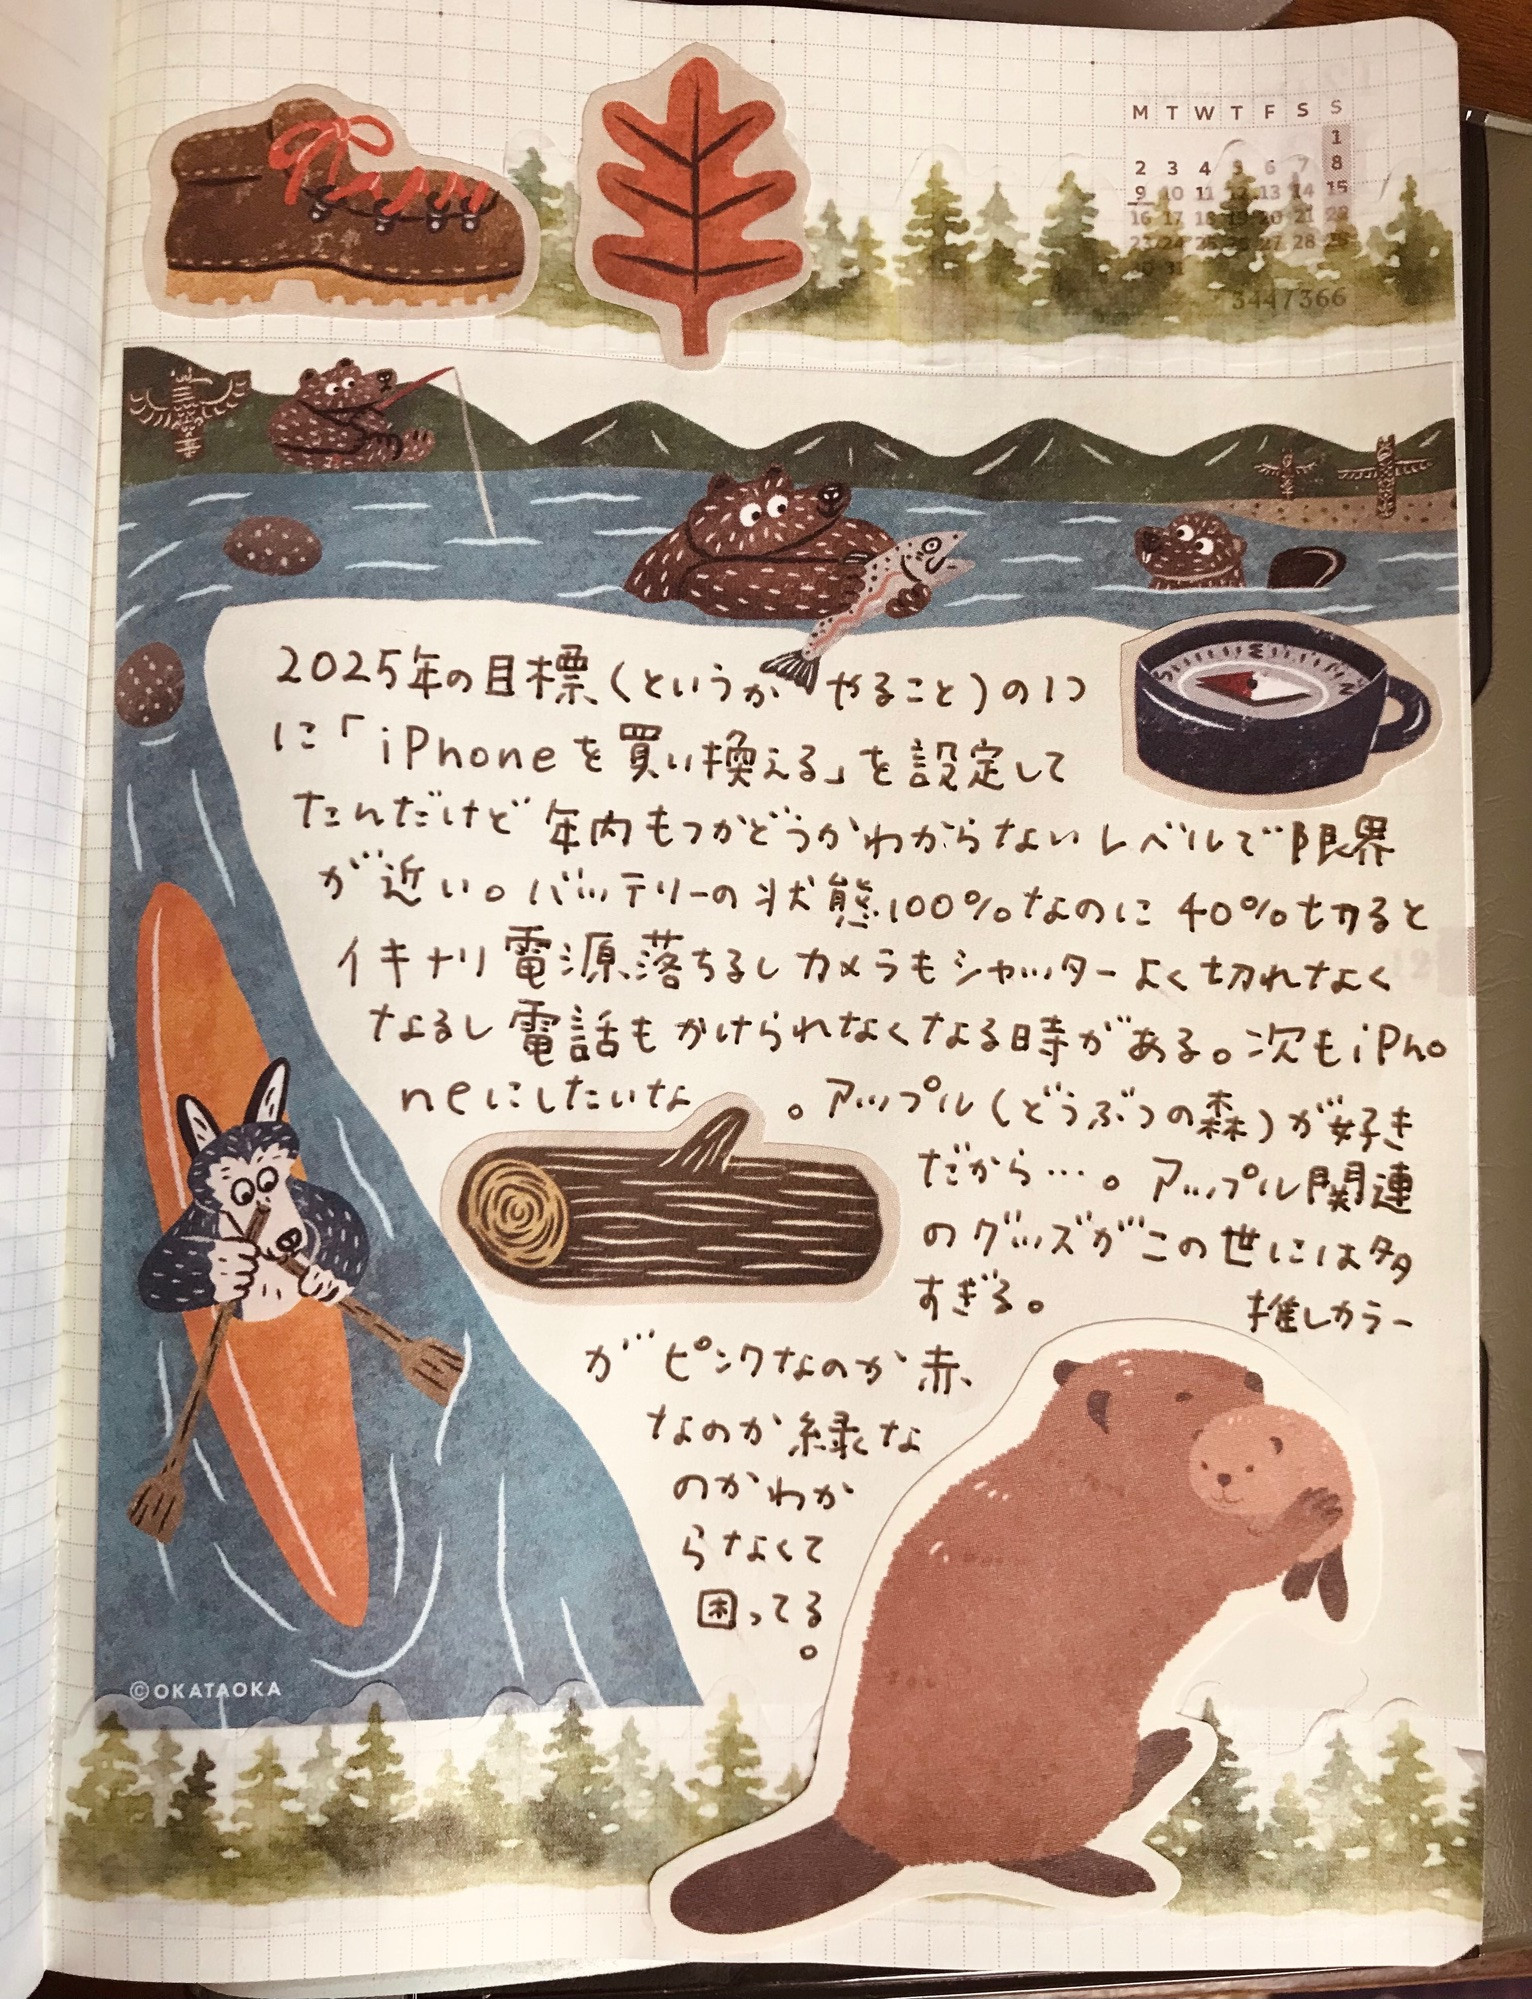 M T W T F S S
1
2 3 4 5 6 7 8
9 10 11 12 13 14 15
16 17 18 19 20 21 22
23 24 25 26 27 28 29
30 31
3447366
S W N
2025年の目標(というか やること)の1つ
に「iPhoneを買い換える」を設定して
たんだけど年内もつかどうかわからないレベルで限界
が近い。バッテリーの状態100%なのに40%切ると
イキナリ電源落ちるしカメラもシャッターよく切れなく
なるし電話もかけられなくなる時がある。次もiPho
neにしたいな 。アップル(どうぶつの森)が好き
だから…。アップル関連
のグッズがこの世には多
すぎる。 推しカラー
がピンクなのか赤
なのか緑な
のかわか
らなくて
困ってる
。
©OKATAOKA